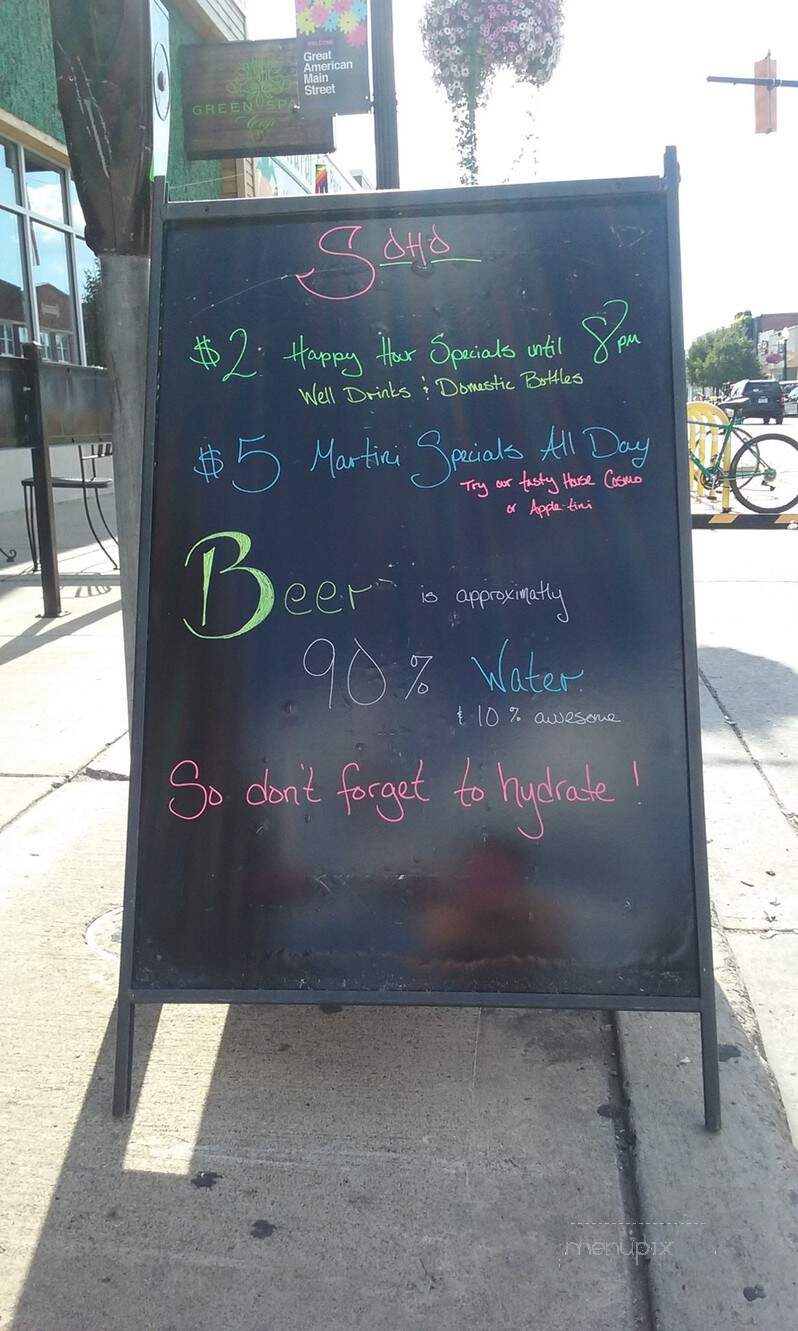 WELCOME
Great
American
Main
Street
GREEN SPA
SOHO
$2 Happy Hour Specials until 8pm
Well Drinks & Domestic Bottles
$5 Martini Specials All Day
Try our tasty House Cosmo
or Apple-tini
Beer is approximatly
90% Water
& 10% awesome
So don't forget to hydrate!
menupix